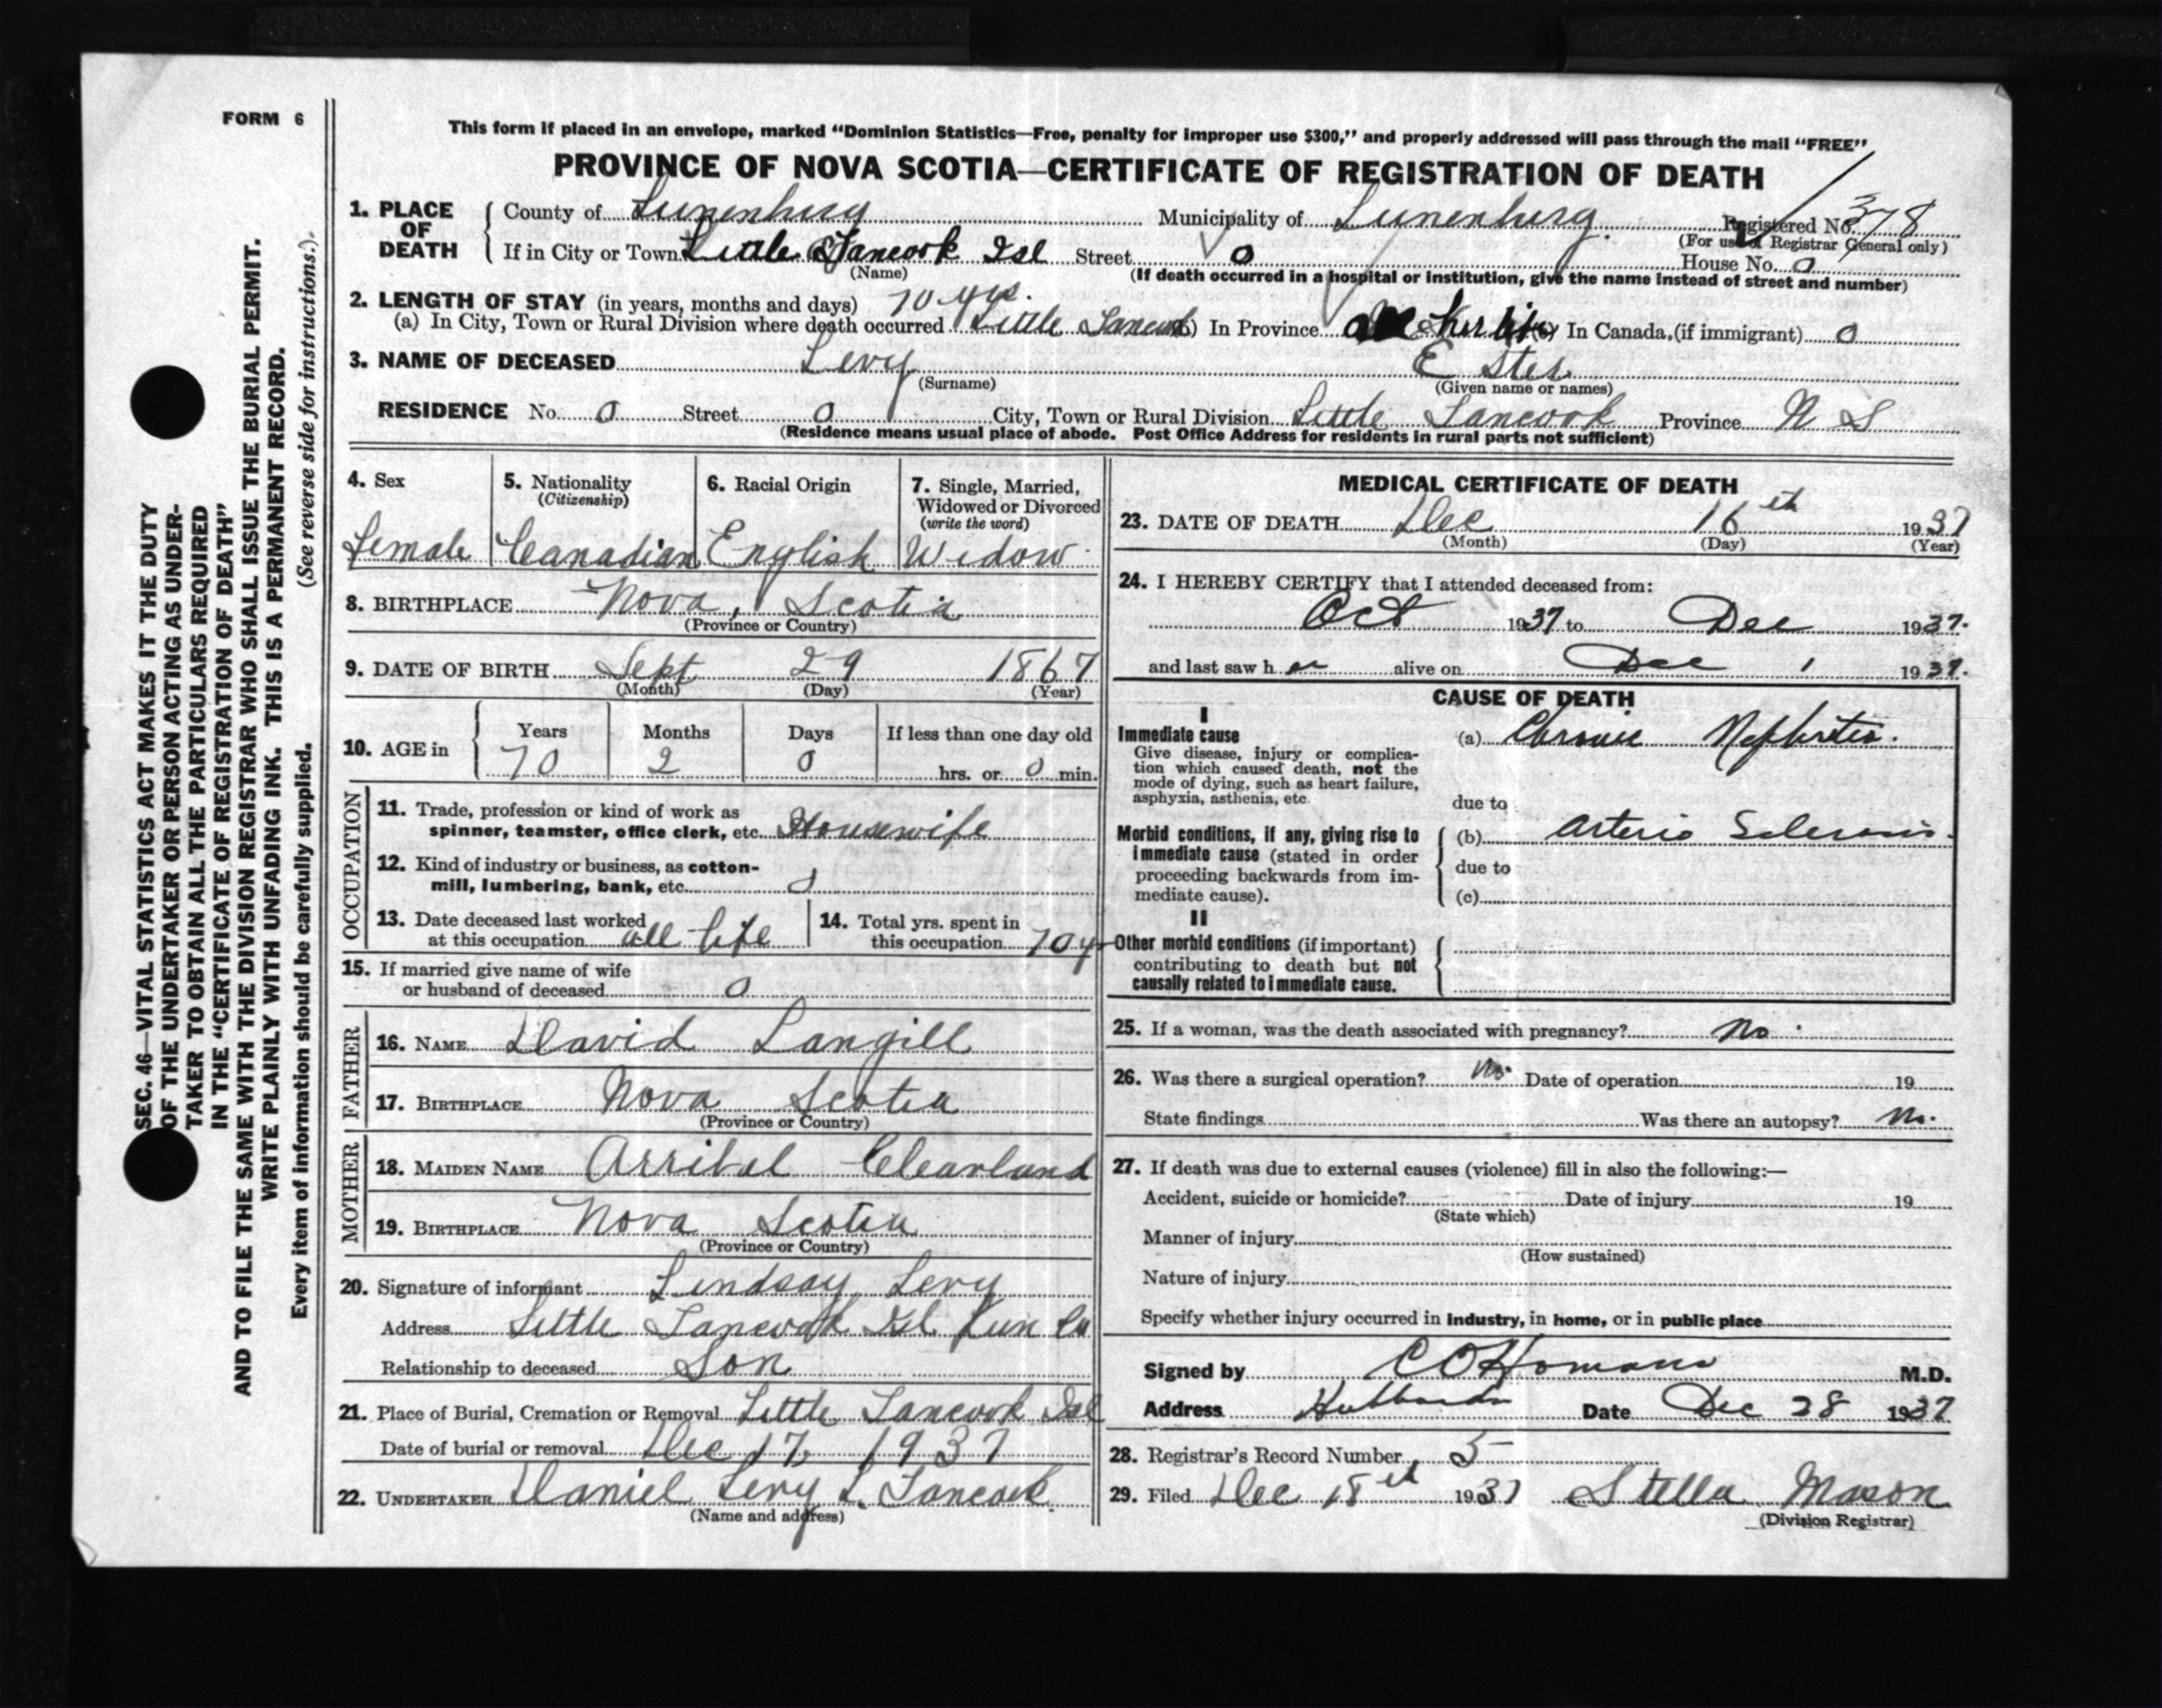 FORM 6
This form if placed in an envelope, marked "Dominion Statistics—Free, penalty for improper use $300," and properly addressed will pass through the mail "FREE"
PROVINCE OF NOVA SCOTIA—CERTIFICATE OF REGISTRATION OF DEATH
1. PLACE OF DEATH
County of Lunenburg Municipality of Lunenburg. Registered No. 378
(For use of Registrar General only)
If in City or Town Little Tancook Isl Street 0 House No. 0
(Name) (If death occurred in a hospital or institution, give the name instead of street and number)
2. LENGTH OF STAY (in years, months and days) 70 yrs.
(a) In City, Town or Rural Division where death occurred Little Tancook (b) In Province all her life (c) In Canada (if immigrant) 0
3. NAME OF DECEASED Levy Ester
(Surname) (Given name or names)
RESIDENCE No. 0 Street 0 City, Town or Rural Division Little Tancook Province N S
(Residence means usual place of abode. Post Office Address for residents in rural parts not sufficient)
4. Sex
Female
5. Nationality
(Citizenship)
Canadian
6. Racial Origin
English
7. Single, Married,
Widowed or Divorced
(write the word)
Widow
8. BIRTHPLACE Nova, Scotia
(Province or Country)
9. DATE OF BIRTH Sept 29 1867
(Month) (Day) (Year)
10. AGE in
Years Months Days If less than one day old
70 2 0 hrs. or 0 min.
OCCUPATION
11. Trade, profession or kind of work as
spinner, teamster, office clerk, etc. Housewife
12. Kind of industry or business, as cotton-
mill, lumbering, bank, etc. 0
13. Date deceased last worked
at this occupation all life
14. Total yrs. spent in
this occupation 70 yr
15. If married give name of wife
or husband of deceased 0
FATHER
16. NAME David Langill
17. BIRTHPLACE Nova Scotia
(Province or Country)
MOTHER
18. MAIDEN NAME Arribel Clearland
19. BIRTHPLACE Nova Scotia
(Province or Country)
20. Signature of informant Lindsay Levy
Address Little Tancook Isl Lun Co
Relationship to deceased Son
21. Place of Burial, Cremation or Removal Little Tancook Isl
Date of burial or removal Dec 17, 1937
22. UNDERTAKER Daniel Levy L. Tancook.
(Name and address)
MEDICAL CERTIFICATE OF DEATH
23. DATE OF DEATH Dec 16th 1937
(Month) (Day) (Year)
24. I HEREBY CERTIFY that I attended deceased from:
Oct 1937 to Dec 1937.
and last saw h er alive on Dec 1 1937.
CAUSE OF DEATH
I
Immediate cause
Give disease, injury or complica-
tion which caused death, not the
mode of dying, such as heart failure,
asphyxia, asthenia, etc
(a) Chronic Nephritis.
due to
Morbid conditions, if any, giving rise to
immediate cause (stated in order
proceeding backwards from im-
mediate cause).
(b) Arterio Sclerosis.
due to
(c)
II
Other morbid conditions (if important)
contributing to death but not
causally related to immediate cause.
25. If a woman, was the death associated with pregnancy? No.
26. Was there a surgical operation? No. Date of operation 19
State findings Was there an autopsy? No.
27. If death was due to external causes (violence) fill in also the following:—
Accident, suicide or homicide? Date of injury 19
(State which)
Manner of injury
(How sustained)
Nature of injury
Specify whether injury occurred in industry, in home, or in public place
Signed by C O Homans M.D.
Address Hubbards Date Dec 28 1937
28. Registrar's Record Number 5
29. Filed Dec 18th 1937 Stella Mason
(Division Registrar)
SEC. 46—VITAL STATISTICS ACT MAKES IT THE DUTY
OF THE UNDERTAKER OR PERSON ACTING AS UNDER-
TAKER TO OBTAIN ALL THE PARTICULARS REQUIRED
IN THE "CERTIFICATE OF REGISTRATION OF DEATH"
AND TO FILE THE SAME WITH THE DIVISION REGISTRAR WHO SHALL ISSUE THE BURIAL PERMIT.
WRITE PLAINLY WITH UNFADING INK. THIS IS A PERMANENT RECORD.
Every item of information should be carefully supplied. (See reverse side for instructions.)